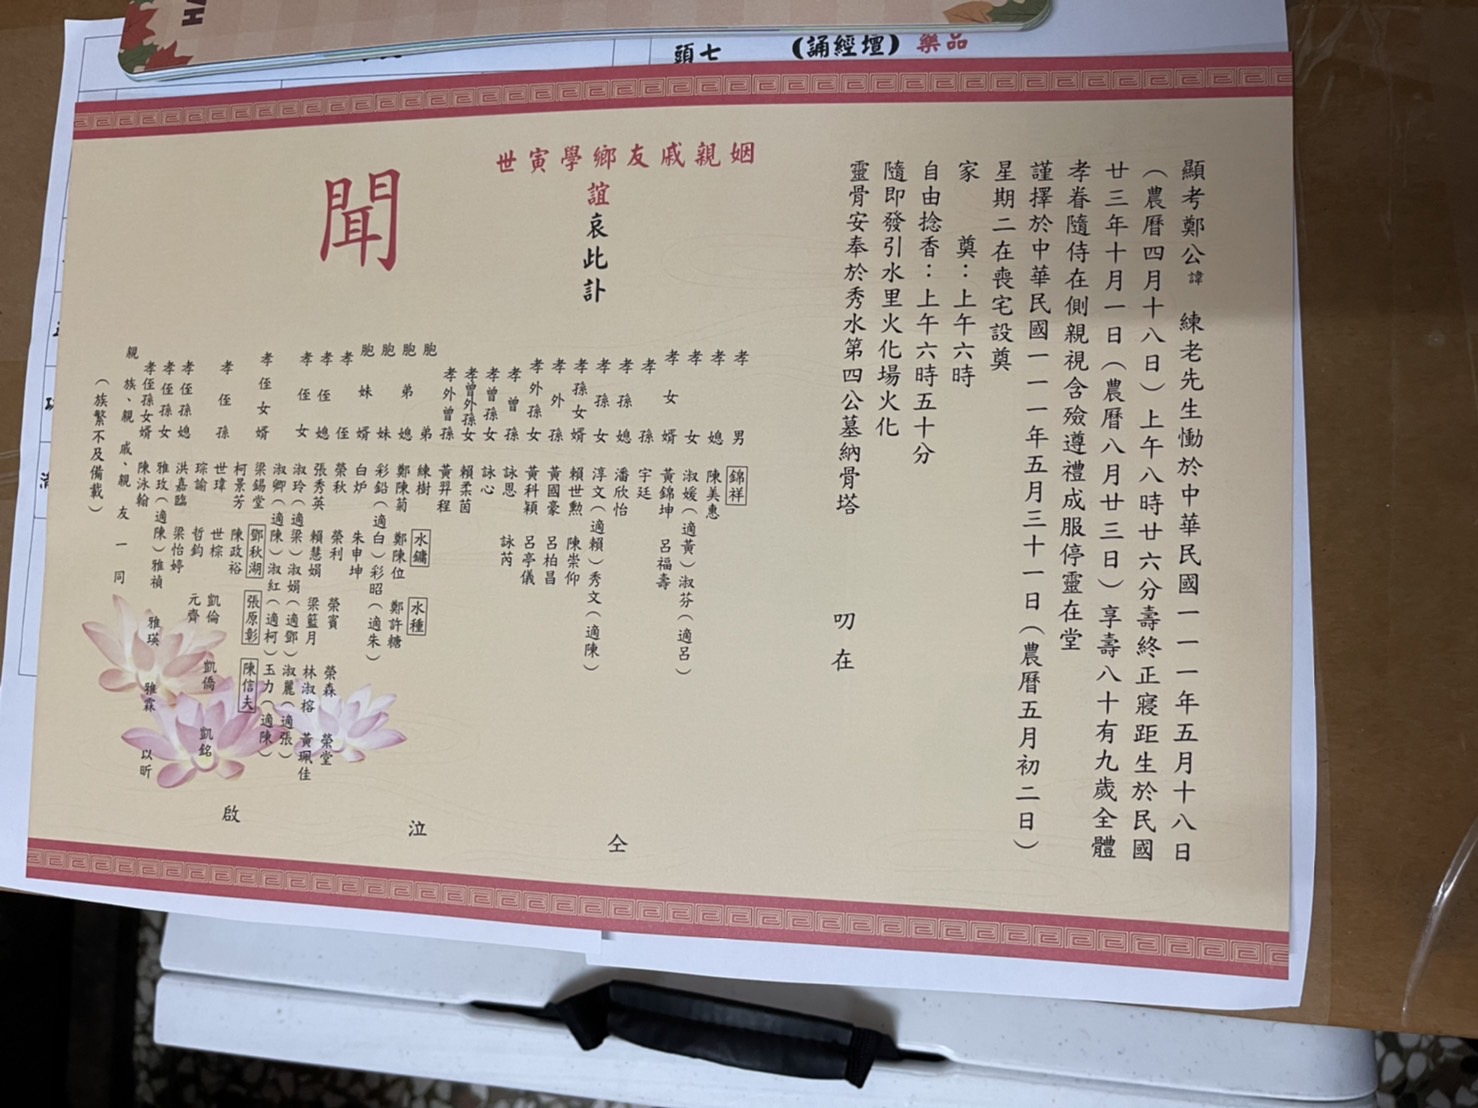 HA
頭七
(誦經壇)藥品
顯考鄭公諱 練老先生慟於中華民國一一一年五月十八日
（農曆四月十八日）上午八時廿六分壽終正寢距生於民國
廿三年十月一日（農曆八月廿三日）享壽八十有九歲全體
孝眷隨侍在側親視含殮遵禮成服停靈在堂
謹擇於中華民國一一一年五月三十一日（農曆五月初二日）
星期二在喪宅設奠
家 奠：上午六時
自由捻香：上午六時五十分
隨即發引水里火化場火化
靈骨安奉於秀水第四公墓納骨塔
叨在
姻親戚友鄉學寅世
誼哀此訃
聞
孝男 錦祥
孝媳 陳美惠
孝女 淑媛（適黃）淑芬（適呂）
孝女婿 黃錦坤 呂福壽
孝孫 宇廷
孝孫媳 潘欣怡
孝孫女 淳文（適賴）秀文（適陳）
孝孫女婿 賴世勳 陳崇仰
孝外孫 黃國豪 呂柏昌
孝外孫女 黃科穎 呂亭儀
孝曾孫 詠恩 詠芮
孝曾孫女 詠心
孝曾外孫女 賴柔茵
孝外曾孫 黃羿程
胞弟 練樹 水鏞 水種
胞弟媳 鄭陳菊 鄭陳位 鄭許糖
胞妹 彩鉛（適白）彩昭（適朱）
胞妹婿 白炉 朱申坤
孝侄 榮秋 榮利 榮賓 榮森 榮堂
孝侄媳 張秀英 賴慧娟 梁籃月 林淑榕 黃珮佳
孝侄女 淑玲（適梁）淑娟（適鄧）淑麗（適張）
淑卿（適陳）淑紅（適柯）玉力（適陳）
孝侄女婿 梁錫堂 鄧秋湖 張原彰 陳信夫
柯景芳 陳政裕
孝侄孫 世瑋 世棕 凱倫 凱僑 凱銘
琮諭 哲鈞 元齊
孝侄孫媳 洪嘉臨 梁怡婷
孝侄孫女 雅玫（適陳）雅禎 雅瑛 雅霖 以昕
孝侄孫女婿 陳泳翰
親族、親戚、親友一同
（族繁不及備載）
仝
泣
啟